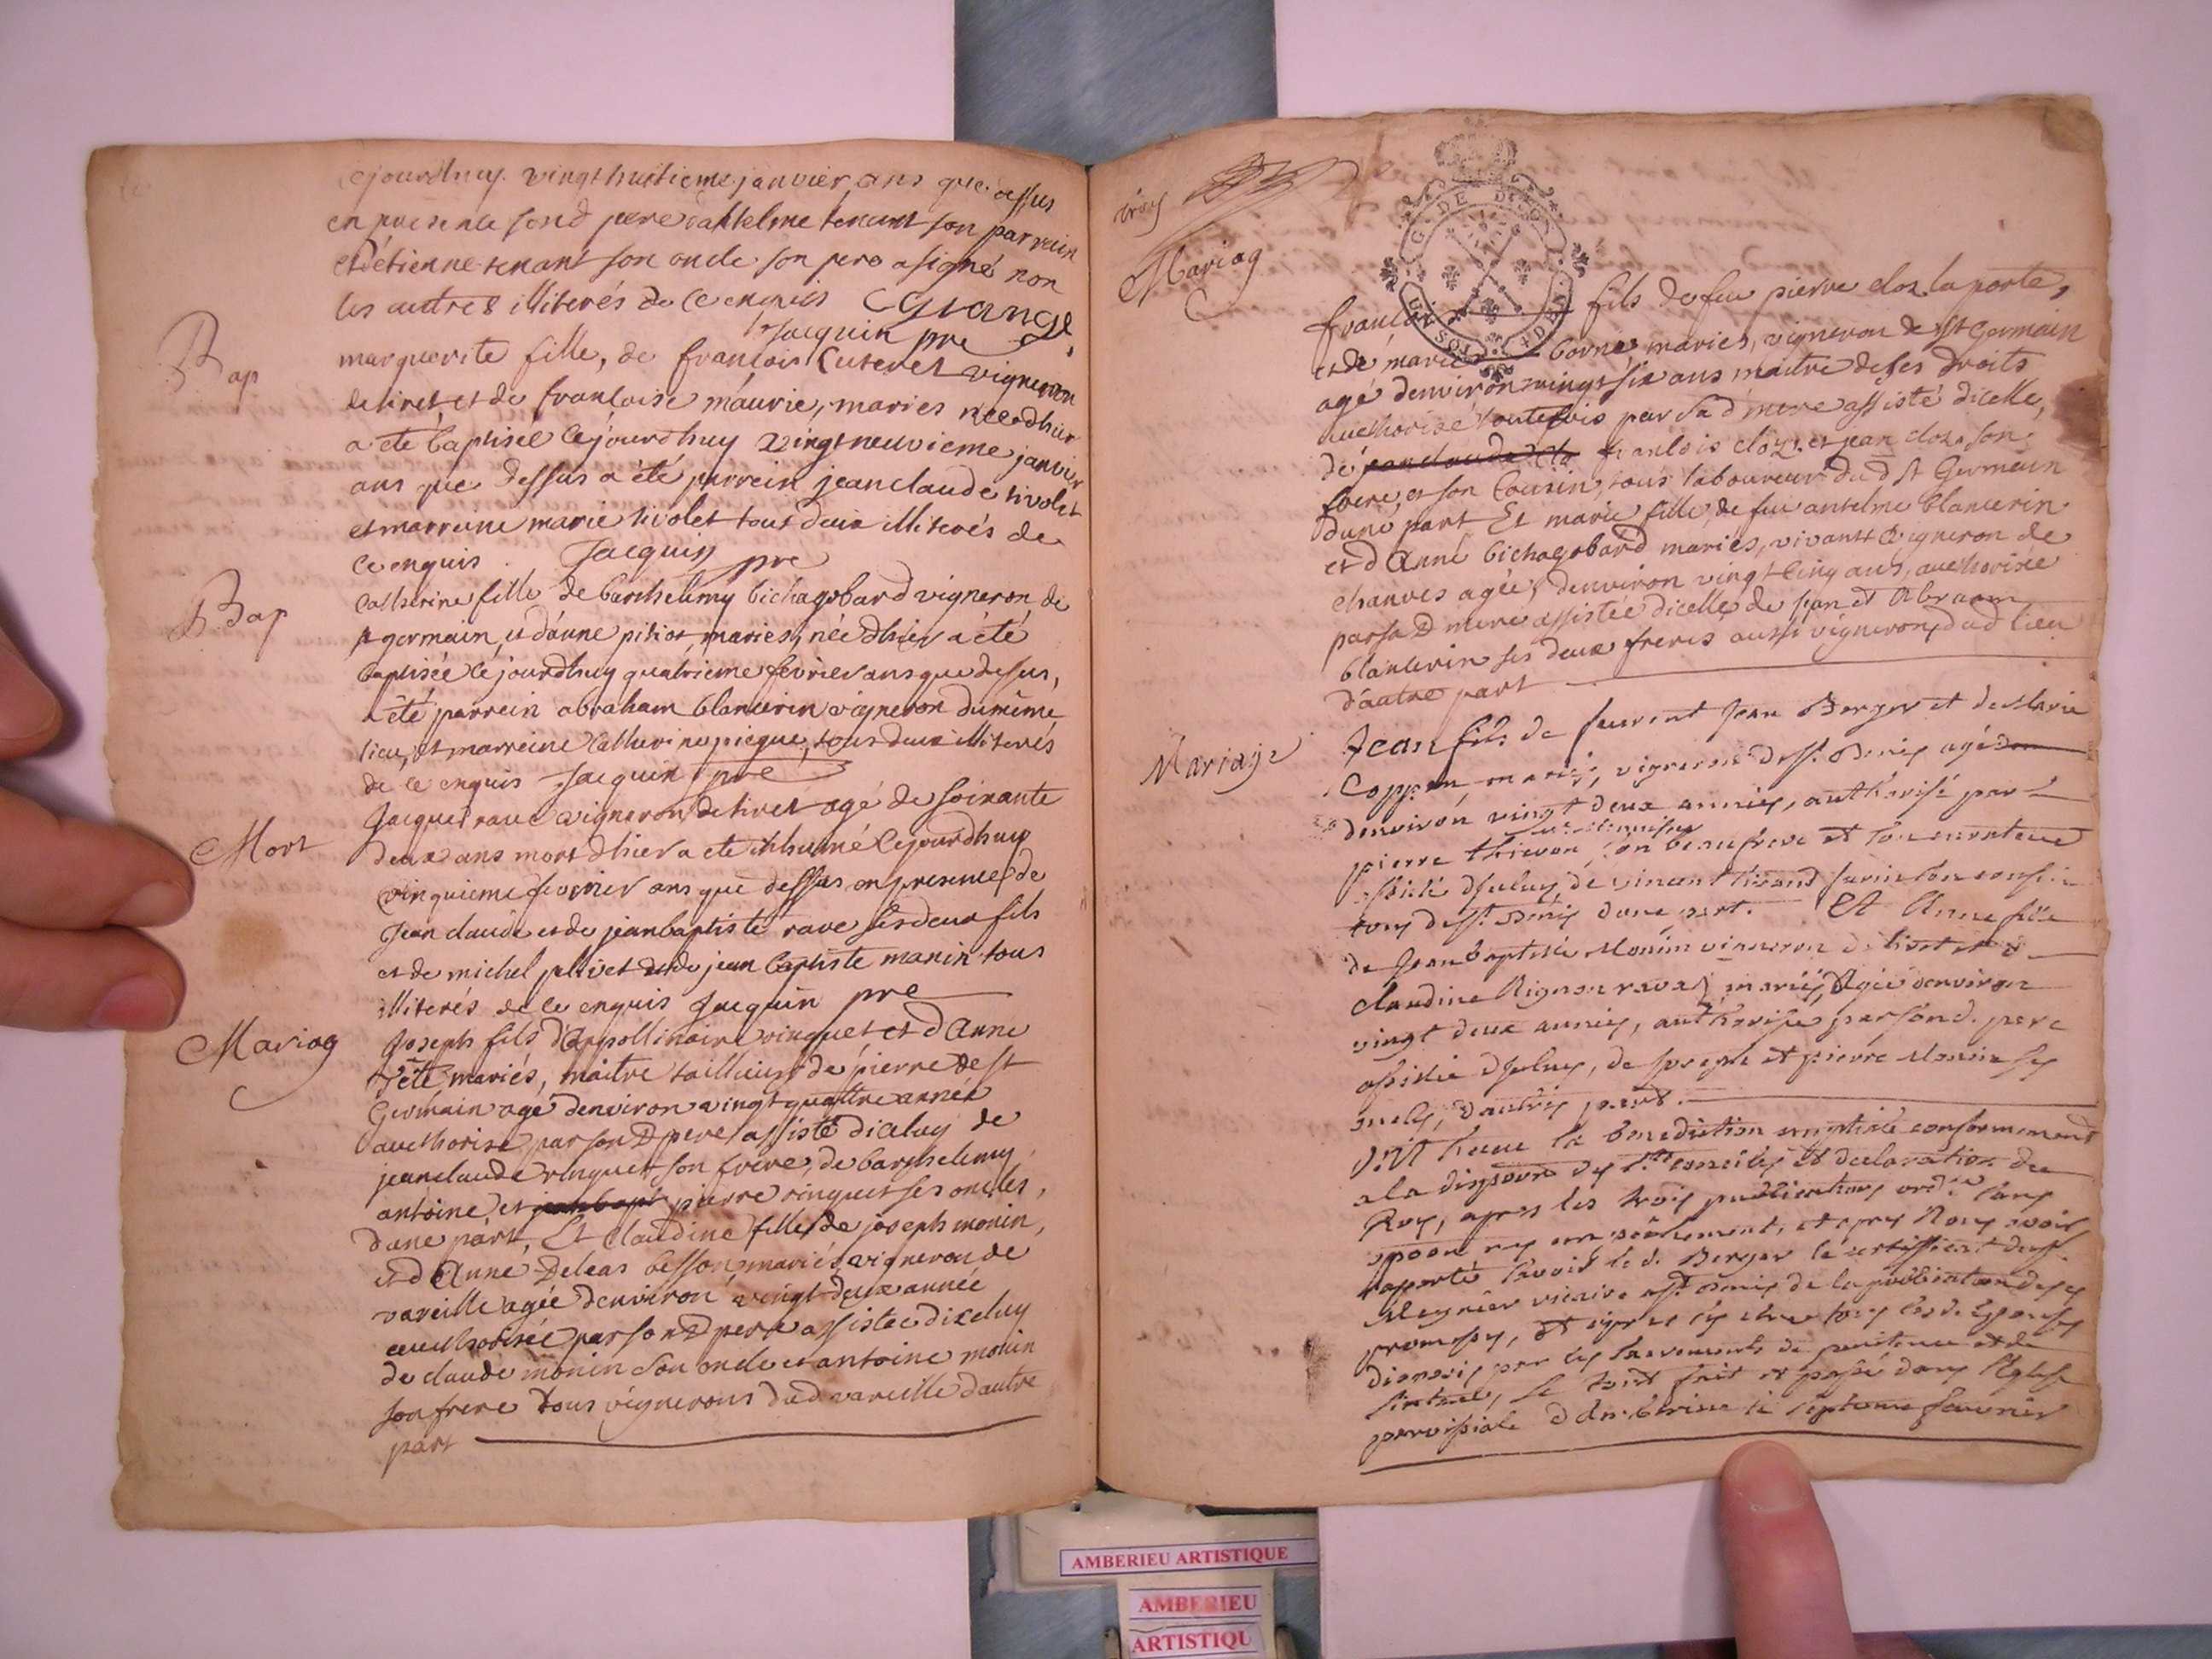 cejourdhuy vingt huitieme janvier ans que dessus
en presence sond pere danthelme tenant son parrein
et detienne tenant son oncle son pere a signé non
les autres illiterés de ce enquis Grange
Jacquin pre
Bap
marguerite fille, de francois Cuteret vigneron
de tiret et de francoise maurie, mariés née dhier
a été baptisée cejourdhuy vingt neuvieme janvier
ans que dessus a été parrein jean claude tivolet
et marreine marie tivolet tout deux illiterés de
ce enquis. Jacquin pre
Bap
Catherine fille de barthelemy bichagobard vigneron de
st germain, et danne pitiot, mariés, née dhier a été
baptisée cejourdhuy quatrieme fevrier ans que dessus,
a été parrein abraham blancerin vigneron du même
lieu, et marreine Catherine picque, tous deux illiterés
de ce enquis Jacquin pre
Mort
Jacque rave vigneron de tiret agé de soixante
deux ans mort dhier a été inhumé cejourdhuy
cinquieme fevrier ans que dessus en presence de
Jean claude et de jean baptiste rave ses deux fils
et de michel pelivet et de jean baptiste manin tous
illiterés de ce enquis Jacquin pre
Mariag
Joseph fils d'appollinaire ringuet et d'Anne
Tété mariés, maitre tailleur de pierre de st
Germain agé denviron vingt quattre année
aucthorisé par son D pere assisté diceluy de
jean claude ringuet son frere, de barthelemy
antoine et pierre ringuet ses oncles,
dune part, Et Claudine fille de joseph monin,
et d'Anne Deleas besson mariés vigneron de
vareille agée denviron vingt deux année
aucthorisée par son D pere assistée diceluy
de claude monin son oncle et antoine monin
son frere tous vignerons dud vareille dautre
part
trois
Mariag
francois fils de feu pierre cloz laporte,
et de marie bornes mariés, vigneron de st Germain
agé denviron vingt six ans maitre de ses droits
aucthorisé toutefois par sad mere assisté dicelle,
de francois cloz, et jean cloz son
frere, et son Cousin, tous laboureur dud st Germain
dune part Et marie fille, de feu antelme blancerin
et d'Anne bichagobard mariés, vivant vigneron de
chanves agée denviron vingt cinq ans, aucthorisée
par sa D mere assistée dicelle de jean et Abraam
blancerin ses deux freres aussi vignerons dud lieu
d'autre part
Mariage
Jean fils de feu Jean Berger et de Marie
Coppon, mariés, vigneron de st. Denis agé
denviron vingt deux années, authorisé par
pierre thievon son beau frere et
assisté diceluy de vincent son cousin
tous de st. Denis dune part. Et Anne fille
de Jean baptiste Monin vigneron de tiret et
claudine mariés, Agée denviron
vingt deux années, authorisée par sond. pere
assistée diceluy, de Joseph et pierre Monin ses
oncles, d'autre part.
Ont receu la benediction nuptiale conformement
a la disposon des sts conciles et declaration du
Roy, apres les trois publications ordres sans
oppoon ny empechement, et apres Nous avoir
rapporté scavoir le d. Berger le certifficat de
Meynier vicaire a st. Denis de la publication de ses
promesses, et apres s'etre tous les d. Espouses
disposés par les sacrements de penitence et de
le tout fait et passé dans l'Eglise
parroissiale d'Amberieu le septieme fevrier
AMBERIEU ARTISTIQUE
AMBERIEU
ARTISTIQU